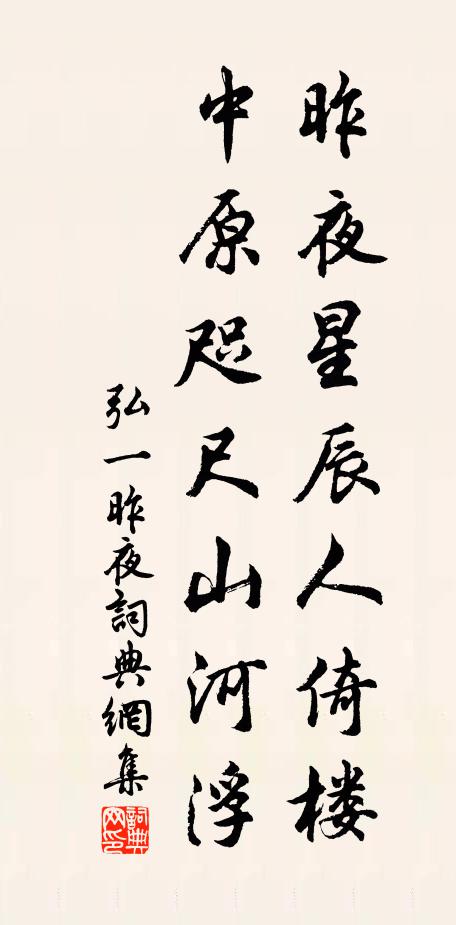 昨夜星辰人倚楼
中原咫尺山河浮
弘一昨夜詞典網集
詞典网印